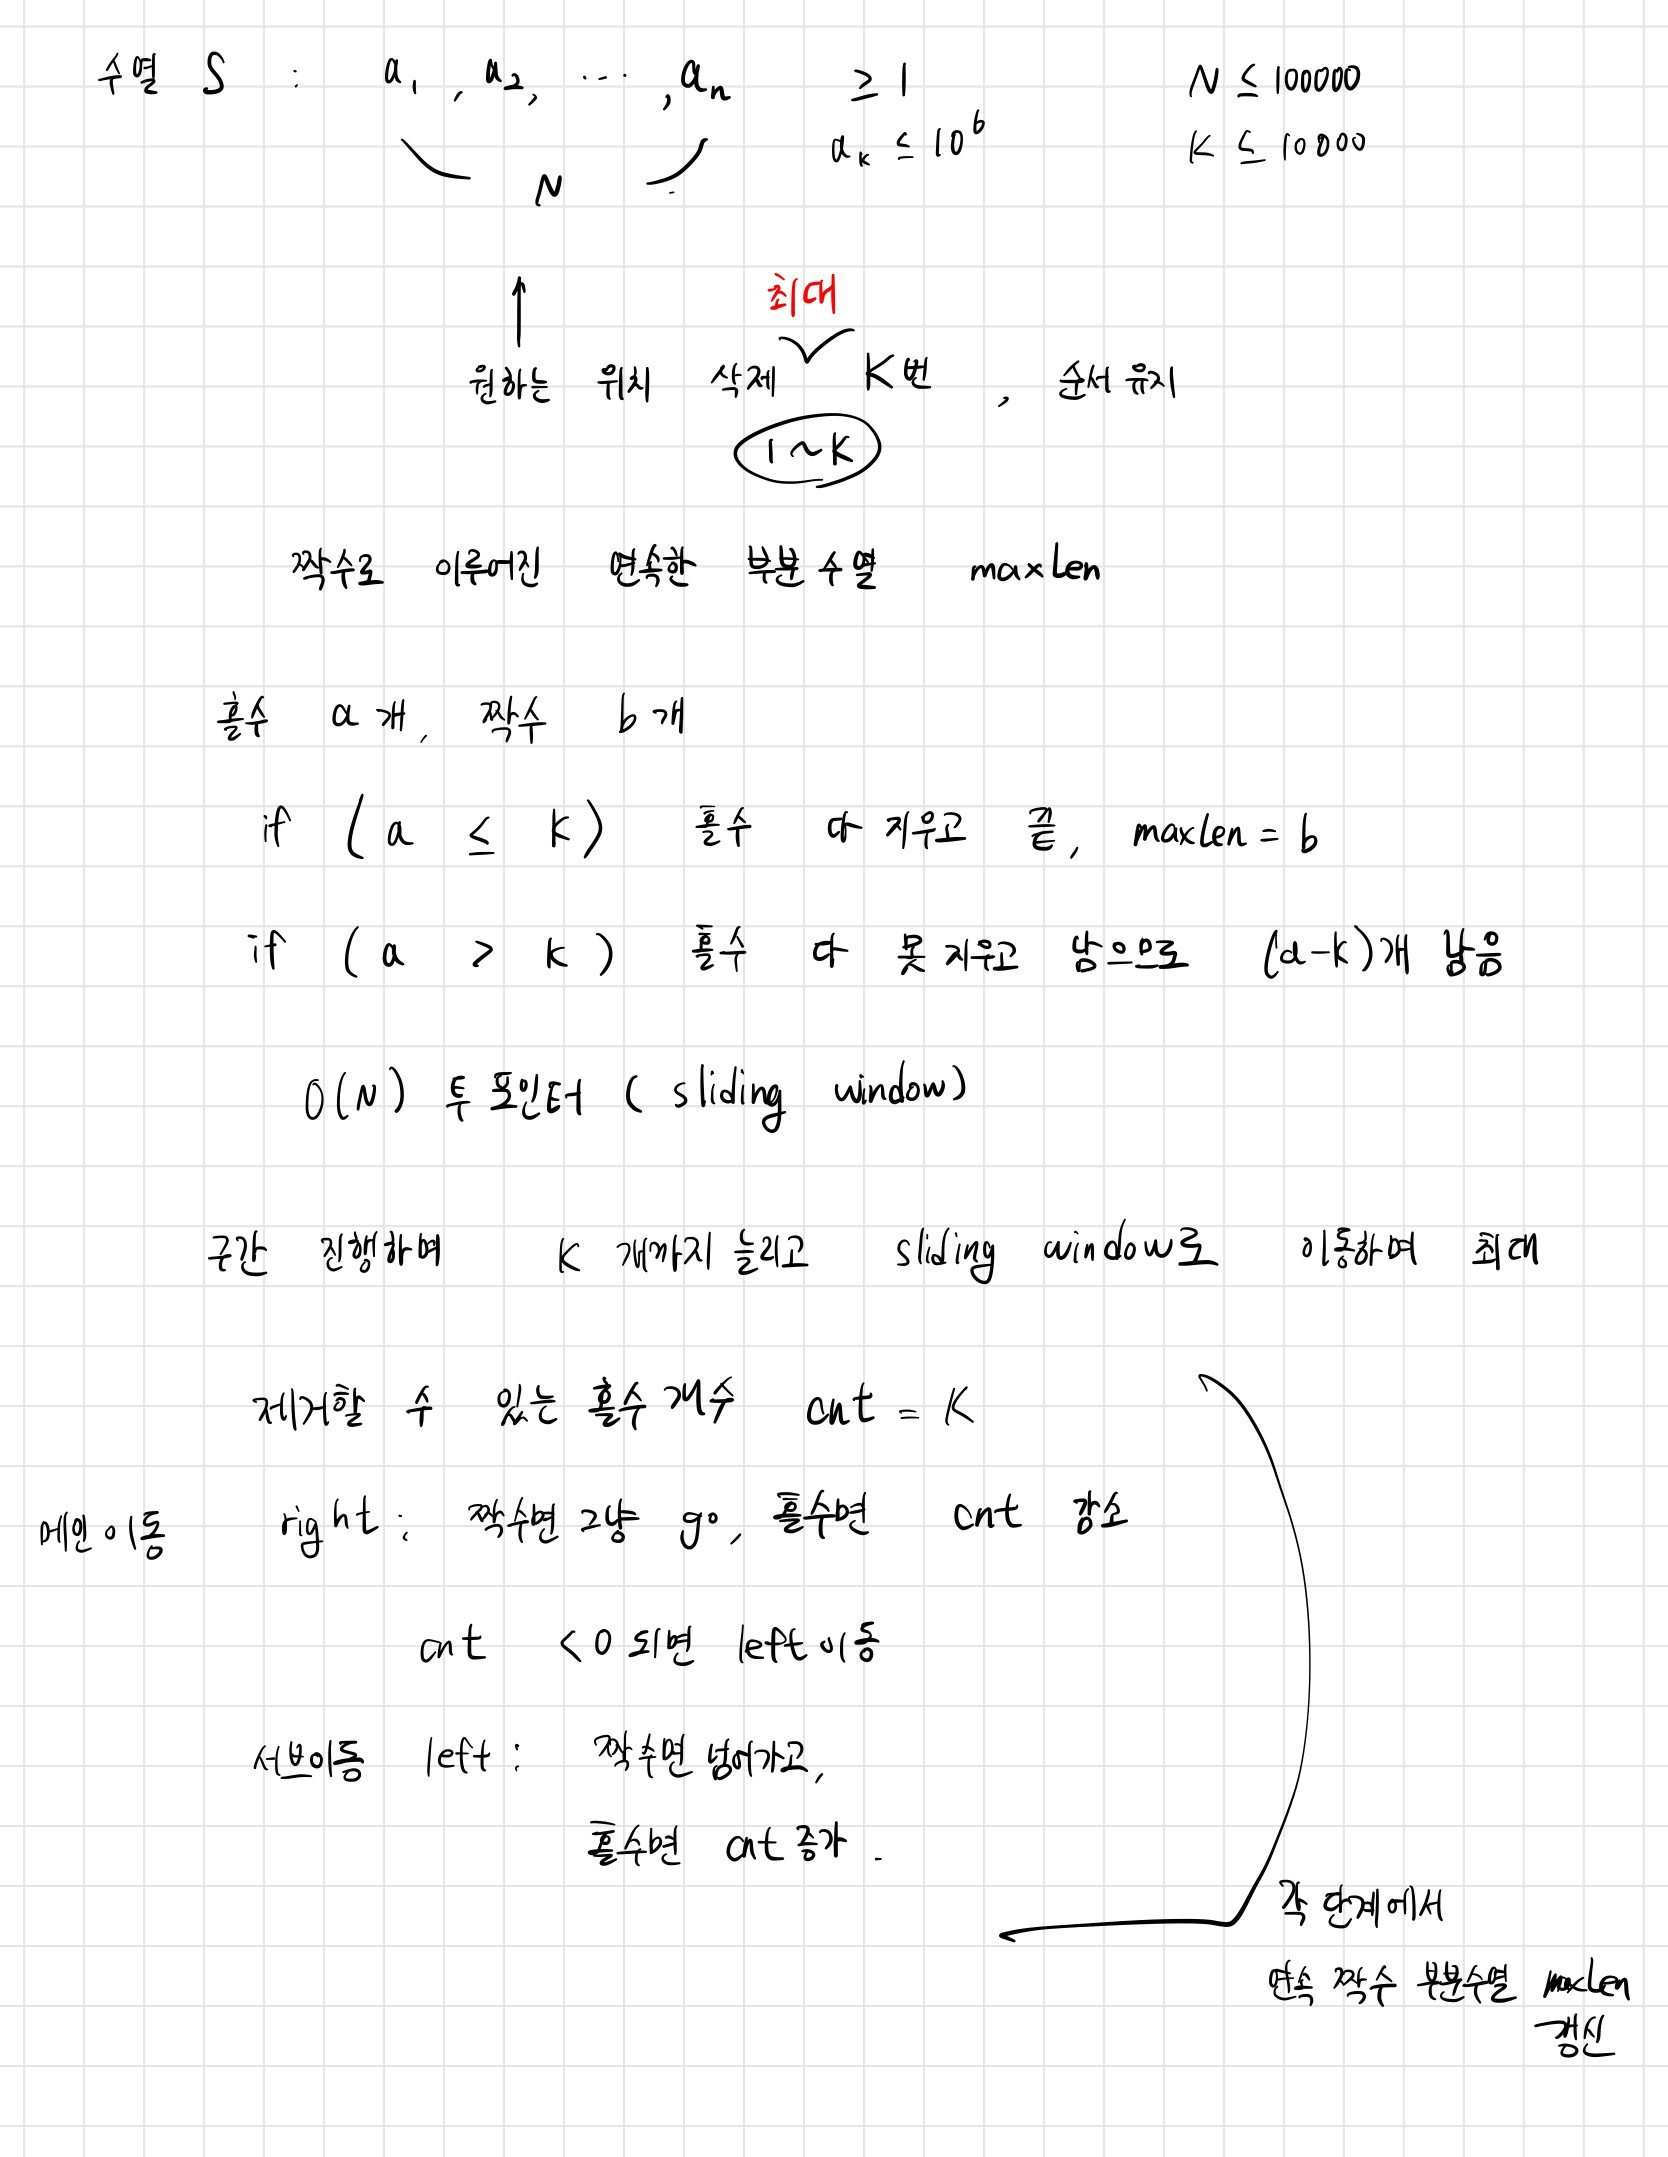 수열 S : a₁, a₂, ..., aₙ ≥ 1 N ≤ 100000
aₖ ≤ 10⁶ K ≤ 10000
N
최대
원하는 위치 삭제 K번, 순서 유지
1 ~ K
짝수로 이루어진 연속한 부분수열 maxLen
홀수 a개, 짝수 b개
if (a ≤ K) 홀수 다 지우고 끝, maxLen = b
if (a > K) 홀수 다 못 지우고 남으므로 (a-k)개 남음
O(N) 투 포인터 (sliding window)
구간 진행하며 K 개까지 늘리고 sliding window로 이동하며 최대
제거할 수 있는 홀수 개수 cnt = K
메인이동 right : 짝수면 그냥 go, 홀수면 cnt 감소
cnt < 0 되면 left 이동
서브이동 left : 짝수면 넘어가고,
홀수면 cnt 증가.
각 단계에서
연속 짝수 부분수열 maxLen
갱신